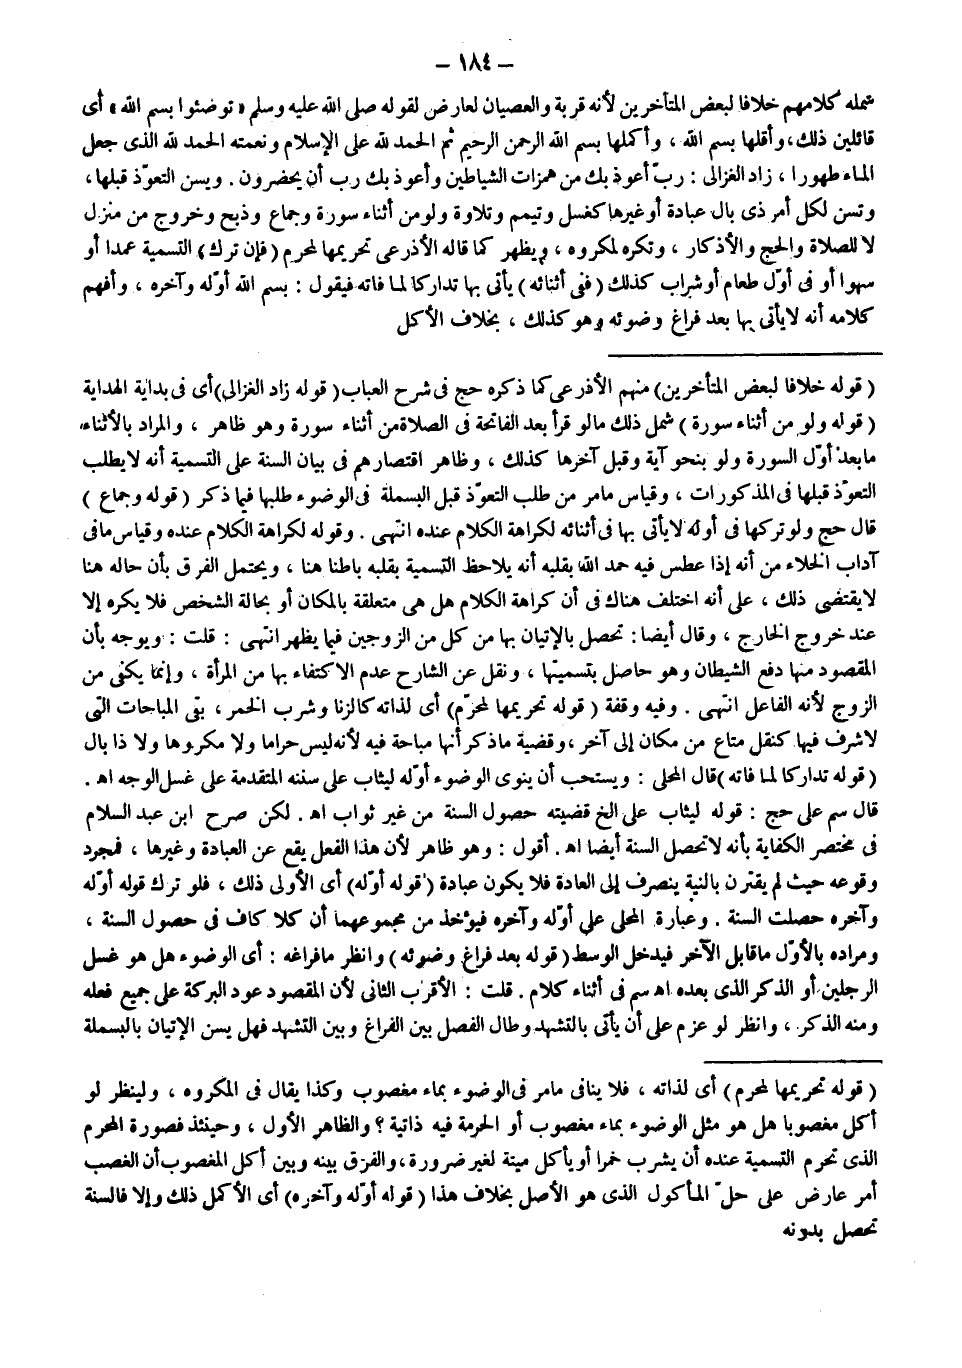 – ١٨٤ –
شمله كلامهم خلافا لبعض المتأخرين لأنه قربة والعصيان لعارض لقوله صلى الله عليه وسلم «توضئوا بسم الله» أى
قائلين ذلك، وأقلها بسم الله ، وأكملها بسم الله الرحمن الرحيم ثم الحمد لله على الإسلام ونعمته الحمد لله الذى جعل
الماء طهورا ، زاد الغزالى : ربّ أعوذ بك من همزات الشياطين وأعوذ بك رب أن يحضرون . ويسن التعوّذ قبلها ،
وتسن لكل أمر ذى بال عبادة أو غيرها كغسل وتيمم وتلاوة ولو من أثناء سورة وجماع وذبح وخروج من منزل
لا للصلاة والحج والأذكار ، وتكره لمكروه ، ويظهر كما قاله الأذرعى تحريمها لمحرم (فإن ترك) التسمية عمدا أو
سهوا أو فى أوّل طعام أو شراب كذلك (ففى أثنائه) يأتى بها تداركا لما فاته فيقول : بسم الله أوّله وآخره ، وأفهم
كلامه أنه لا يأتى بها بعد فراغ وضوئه وهو كذلك ، بخلاف الأكل
( قوله خلافا لبعض المتأخرين) منهم الأذرعى كما ذكره حج فى شرح العباب ( قوله زاد الغزالى) أى فى بداية الهداية
( قوله ولو من أثناء سورة ) شمل ذلك مالو قرأ بعد الفاتحة فى الصلاة من أثناء سورة وهو ظاهر ، والمراد بالأثناء
ما بعد أوّل السورة ولو بنحو آية وقبل آخرها كذلك ، وظاهر اقتصارهم فى بيان السنة على التسمية أنه لا يطلب
التعوّذ قبلها فى المذكورات ، وقياس مامر من طلب التعوّذ قبل البسملة فى الوضوء طلبها فيما ذكر ( قوله وجماع )
قال حج ولو تركها فى أوله لا يأتى بها فى أثنائه لكراهة الكلام عنده انتهى . وقوله لكراهة الكلام عنده وقياس مافى
آداب الخلاء من أنه إذا عطس فيه حمد الله بقلبه أنه يلاحظ التسمية بقلبه باطنا هنا ، ويحتمل الفرق بأن حاله هنا
لا يقتضى ذلك ، على أنه اختلف هناك فى أن كراهة الكلام هل هى متعلقة بالمكان أو بحالة الشخص فلا يكره إلا
عند خروج الخارج ، وقال أيضا : تحصل بالإتيان بها من كل من الزوجين فيما يظهر انتهى : قلت : ويوجه بأن
المقصود منها دفع الشيطان وهو حاصل بتسميتها ، ونقل عن الشارح عدم الاكتفاء بها من المرأة ، وإنما يكفى من
الزوج لأنه الفاعل انتهى . وفيه وقفة ( قوله تحريمها لمحرّم) أى لذاته كالزنا وشرب الخمر ، بقى المباحات التى
لا شرف فيها كنقل متاع من مكان إلى آخر ، وقضية ما ذكر أنها مباحة فيه لأنه ليس حراما ولا مكروها ولا ذا بال
( قوله تداركا لما فاته ) قال المحلى : ويستحب أن ينوى الوضوء أوّله ليثاب على سننه المتقدمة على غسل الوجه اهـ .
قال سم على حج : قوله ليثاب على الخ قضيته حصول السنة من غير ثواب اهـ . لكن صرح ابن عبد السلام
فى مختصر الكفاية بأنه لا تحصل السنة أيضا اهـ . أقول : وهو ظاهر لأن هذا الفعل يقع عن العبادة وغيرها ، فمجرد
وقوعه حيث لم يقترن بالنية ينصرف إلى العادة فلا يكون عبادة (قوله أوّله) أى الأولى ذلك ، فلو ترك قوله أوّله
وآخره حصلت السنة . وعبارة المحلى على أوّله وآخره فيؤخذ من مجموعهما أن كلا كاف فى حصول السنة ،
ومراده بالأوّل ماقابل الآخر فيدخل الوسط ( قوله بعد فراغ وضوئه ) وانظر مافراغه : أى الوضوء هل هو غسل
الرجلين أو الذكر الذى بعده اهـ سم فى أثناء كلام . قلت : الأقرب الثانى لأن المقصود عود البركة على جميع فعله
ومنه الذكر ، وانظر لو عزم على أن يأتى بالتشهد وطال الفصل بين الفراغ وبين التشهد فهل يسن الإتيان بالبسملة
( قوله تحريمها لمحرم ) أى لذاته ، فلا ينافى مامر فى الوضوء بماء مغصوب وكذا يقال فى المكروه ، ولينظر لو
أكل مغصوبا هل هو مثل الوضوء بماء مغصوب أو الحرمة فيه ذاتية ؟ والظاهر الأول ، وحينئذ فصورة المحرم
الذى تحرم التسمية عنده أن يشرب خمرا أو يأكل ميتة لغير ضرورة ، والفرق بينه وبين أكل المغصوب أن الغصب
أمر عارض على حلّ المأكول الذى هو الأصل بخلاف هذا ( قوله أوّله وآخره) أى الأكمل ذلك وإلا فالسنة
تحصل بدونه